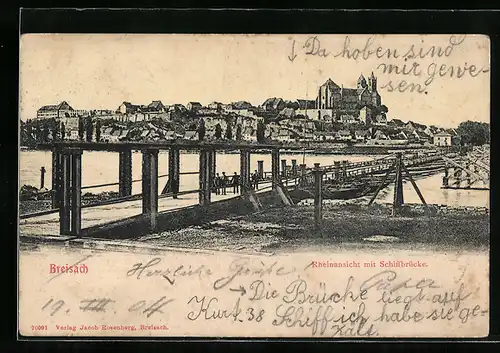 ↓ Da hoben sind
mit gewe-
sen.
Breisach
Rheinansicht mit Schiffbrücke.
Herzliche Grüße Papa
19. III. 04
→ Die Brücke liegt auf
Kurt. 38 Schiff ich habe sie ge-
zält.
20091 Verlag Jacob Rosenberg, Breisach.